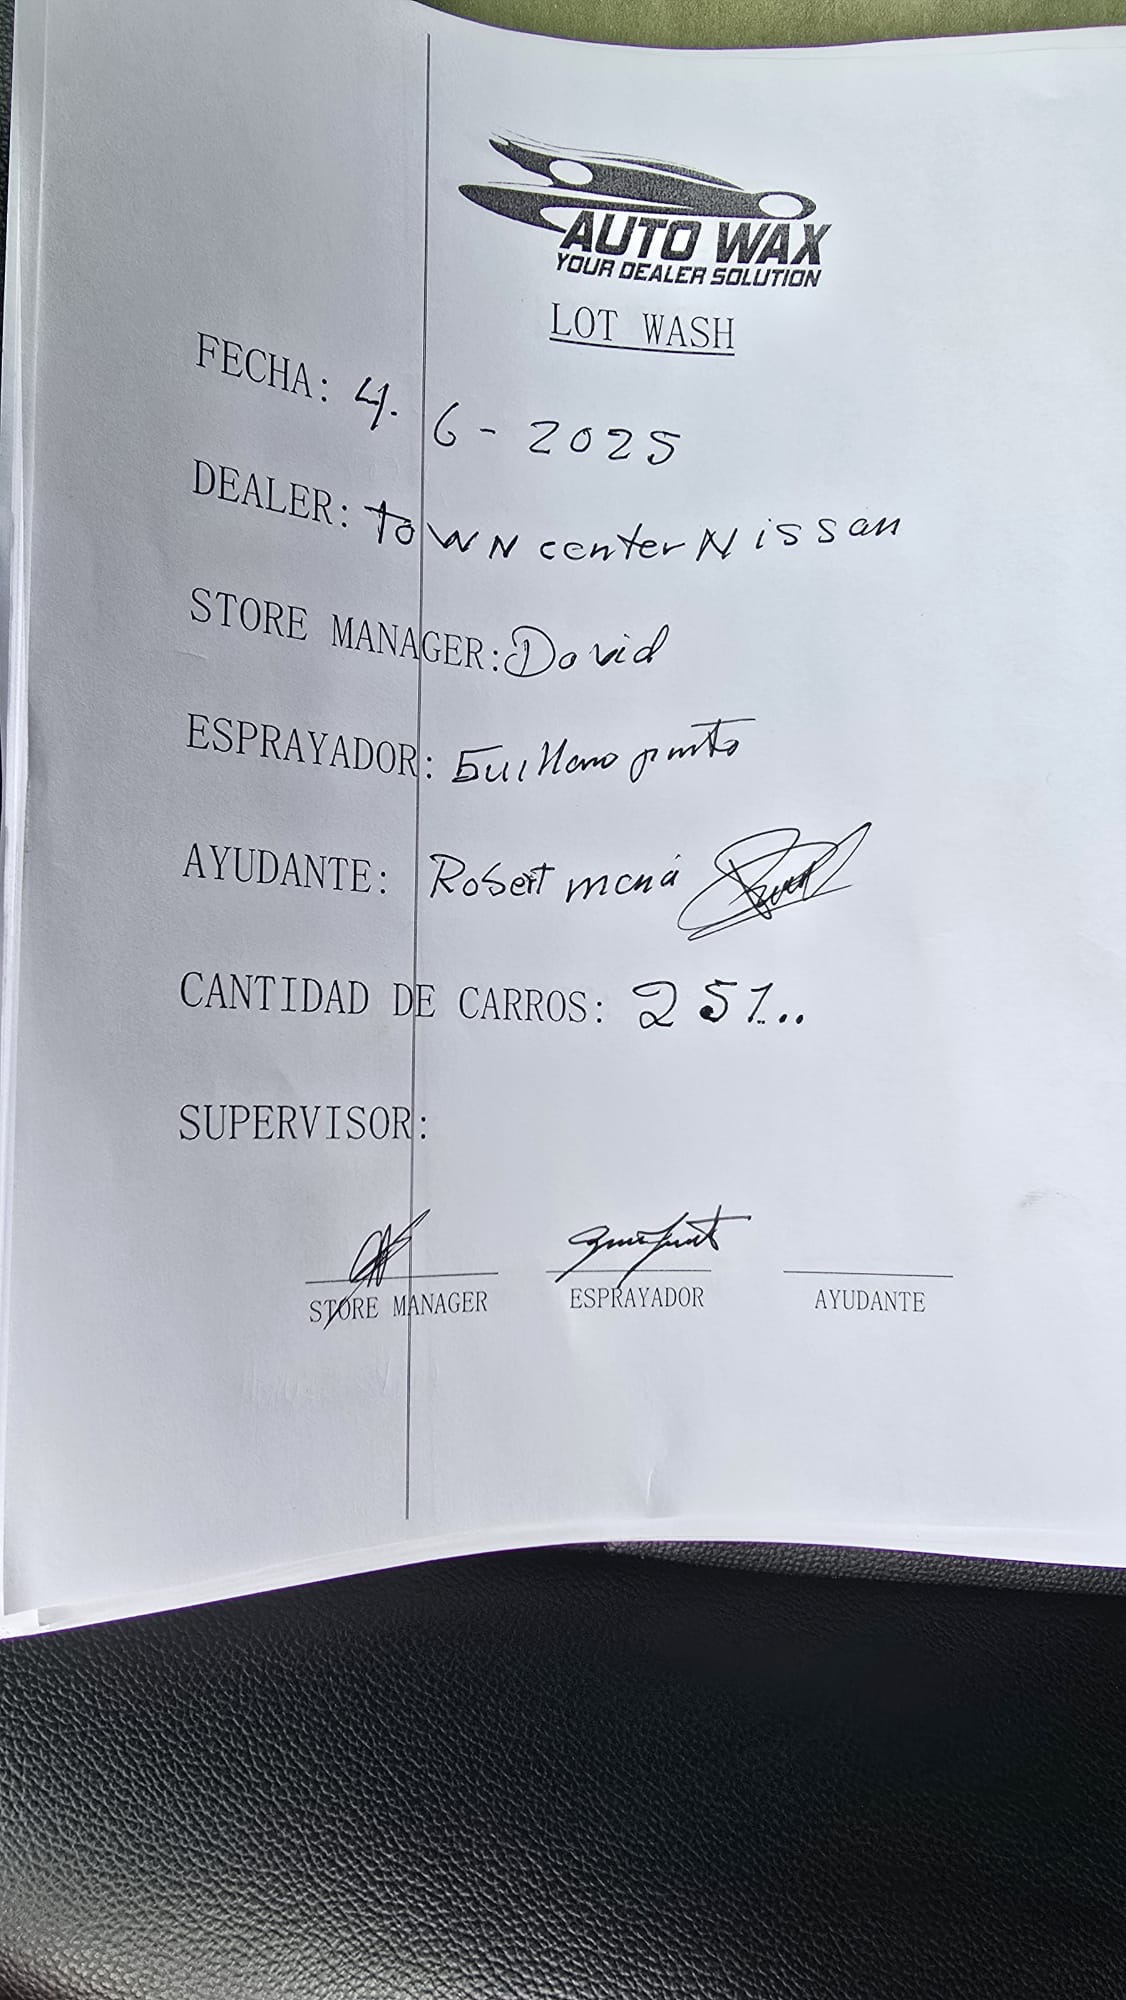 AUTO WAX
YOUR DEALER SOLUTION
LOT WASH
FECHA: 4. 6 - 2025
DEALER: toWN center Nissan
STORE MANAGER: David
ESPRAYADOR: Guillermo pinto
AYUDANTE: Robert mená
CANTIDAD DE CARROS: 251...
SUPERVISOR:
STORE MANAGER ESPRAYADOR AYUDANTE